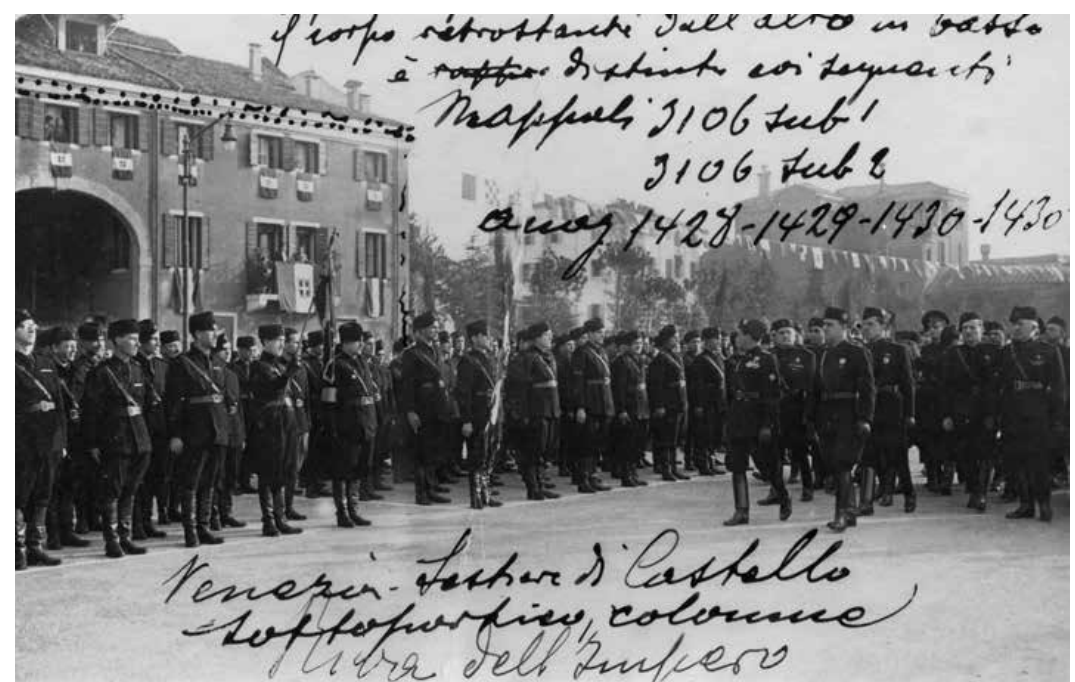 il corpo retrostante dall'altro in basso
è distinto coi seguenti
Mappali 3106 sub 1
3106 sub 2
anag 1428-1429-1430-1430
Venezia - Sestiere di Castello
sottoportico, colonne
Riva dell'Impero